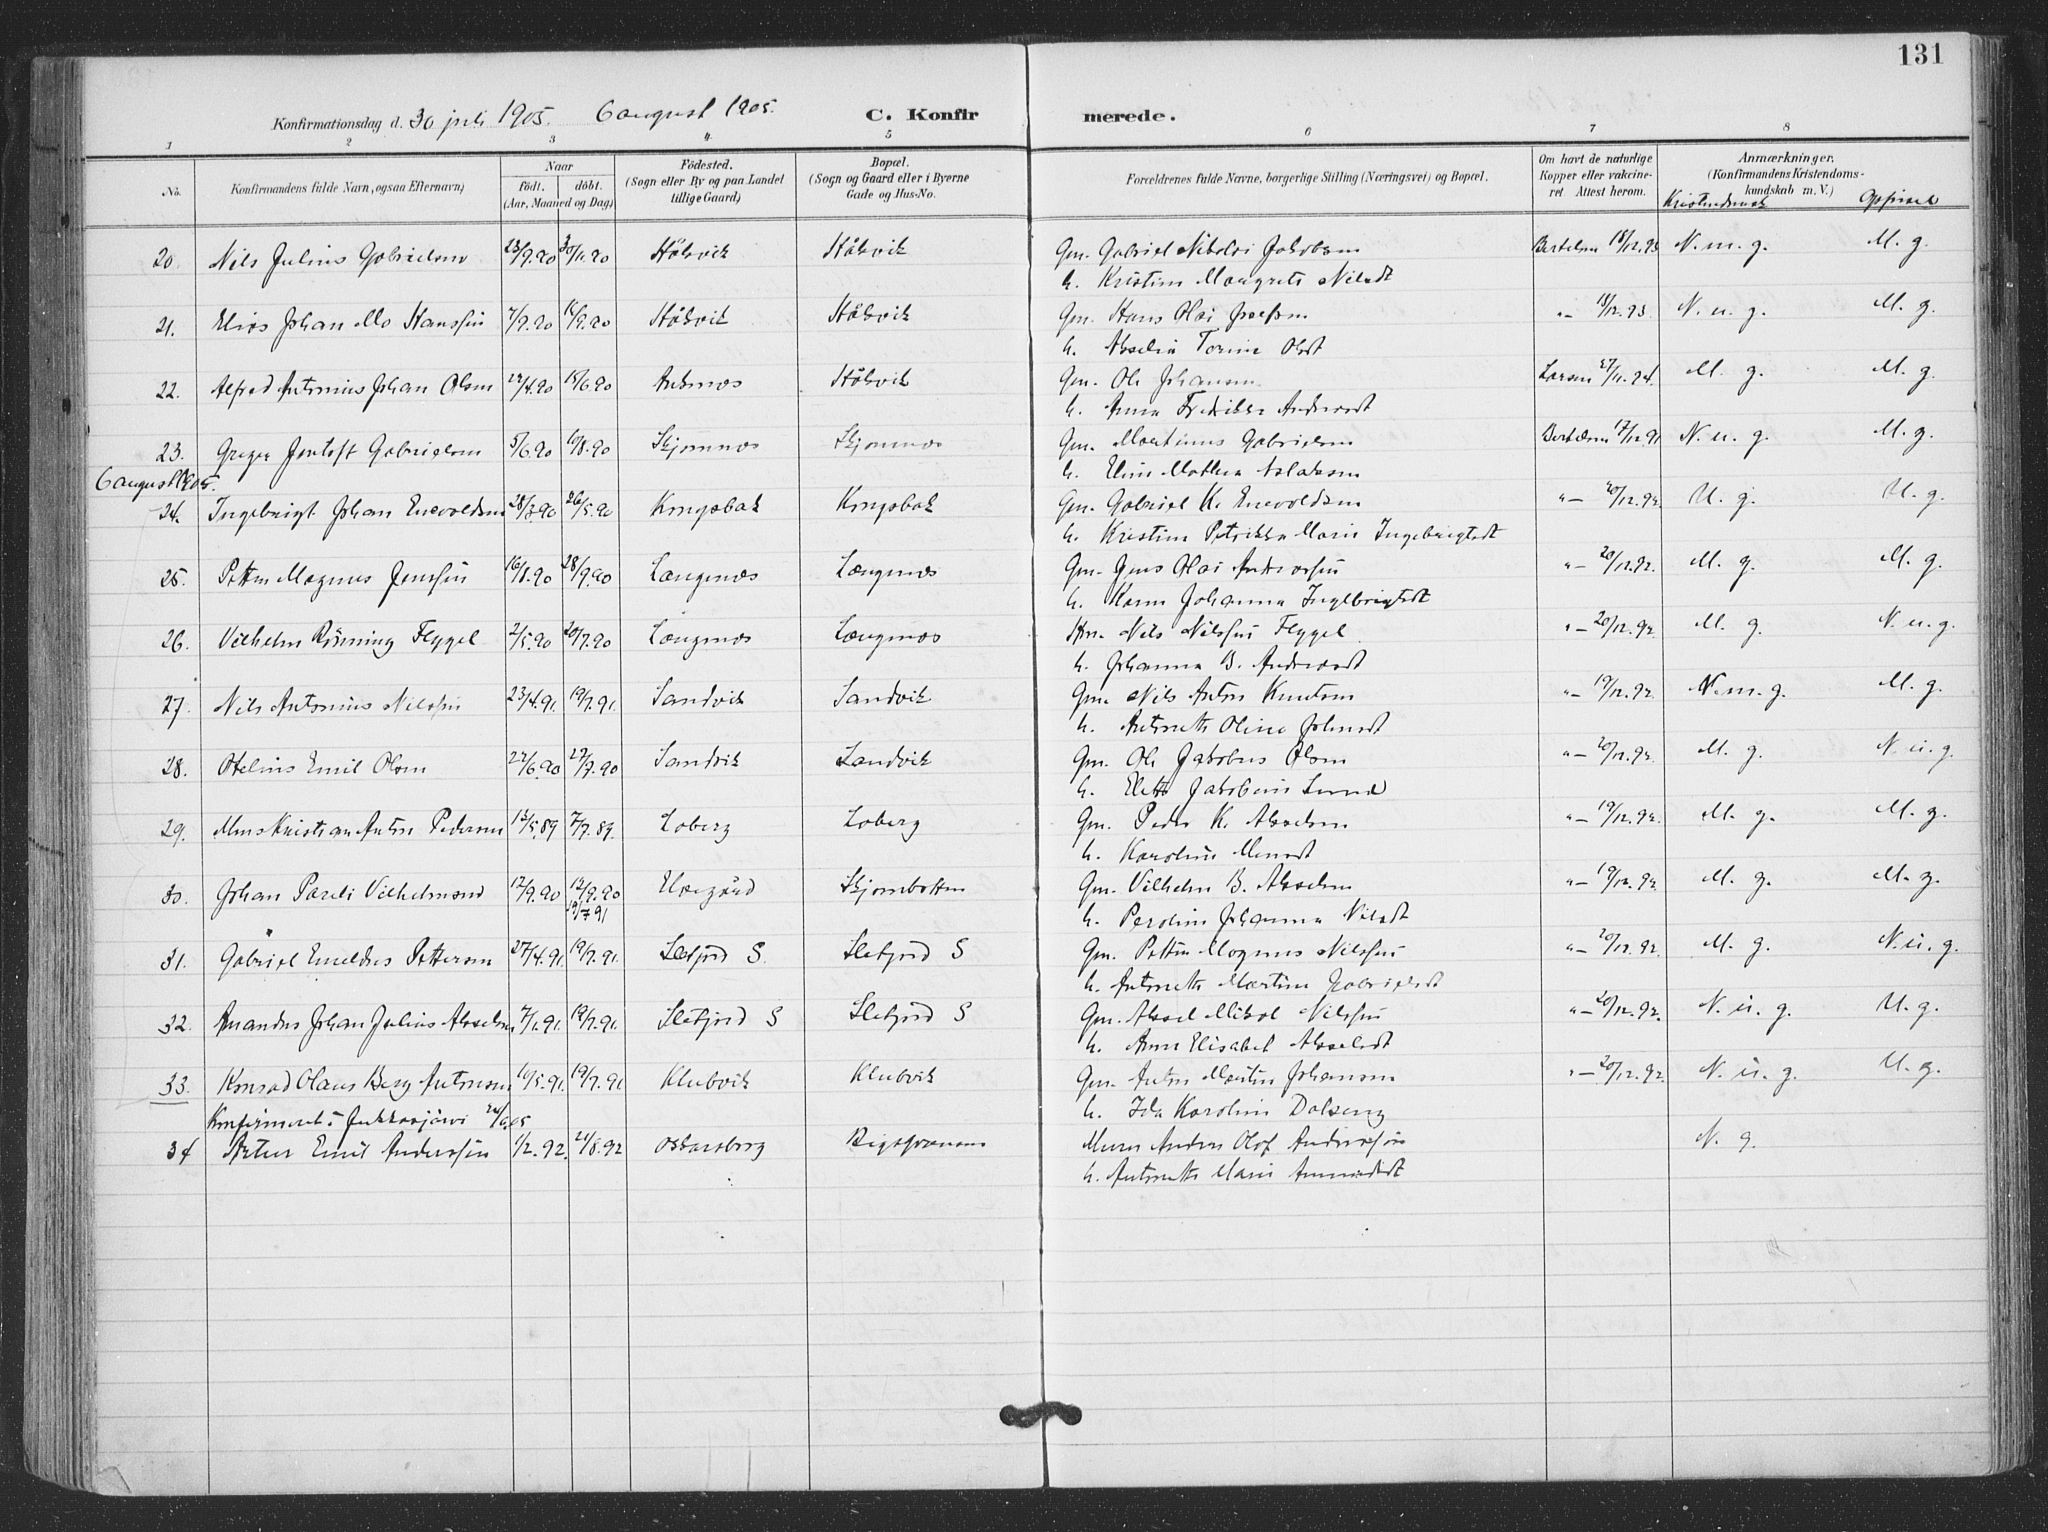 131
Konfirmationsdag d. 30 juli 1905. 6 august 1905. C. Konfirmerede.
1 2 3 4 5 6 7 8
No. Konfirmandens fulde Navn, ogsaa Efternavn) Naar födt. döbt. (Aar, Maaned og Dag) Födested. (Sogn eller By og paa Landet tillige Gaard) Bopæl. (Sogn og Gaard eller i Byerne Gade og Hus-No. Forældrenes fulde Navne, borgerlige Stilling (Næringsvei) og Bopæl. Om havt de naturlige Kopper eller vakcineret Attest herom. Anmærkninger. (Konfirmandens Kristendomskundskab m. V.)
Kristendomsk Opförsel
20. Nils Julius Gabrielsen 23/9.90 30/11.90 Håkvik Håkvik Gm. Gabriel Nikolai Jakobsen Bertelsen 18/12.93 N. m. g. M. g.
h. Kristine Margrete Nilsdt
21. Elias Johan Mo Hanssen 7/9.90 16/9.90 Håkvik Håkvik Gm. Hans Olai Josefsen "– 18/12.93. N. u. g. M. g.
h. Torine Olsdt
22. Alfred Antonius Johan Olsen 24/4.90 15/6.90 Ankenes Håkvik Gm. Ole Johansen Larsen 27/11.94. M. g. M. g.
h. Anna Fredrikke Andersdt
23. Jentoft Gabrielsen 5/6.90 10/8.90 Skjomnes Skjomnes Gm. Martinus Gabrielsen Bertelsen 17/12.91 N. u. g. M. g.
h. Elen Mathea Aslaksen
6 august 1905.
24. Ingebrigt Johan Enevoldsen 28/3.90 26/5.90 Kongsbak Kongsbak Gm. Gabriel K. Enevoldsen "– 20/12.92 U. g. U. g.
h. Kristine Petrikke Marie Ingebrigtsdt
25. Petter Magnus Jenssen 16/8.90 28/9.90 Langnes Langnes Gm. Jens Olai Anderssen "– 20/12.92. M. g. M. g.
h. Karen Johanna Ingebrigtsdt
26. Vilhelm Rönning Flygel 2/5.90 20/7.90 Langnes Langnes Hm. Nils Nilssen Flygel "– 20/12.92. M. g. N. u. g.
h. Johanna B. Andersdt
27. Nils Antonius Nilssen 23/4.91. 19/7.91. Sandvik Sandvik Gm. Nils Anton Knutsen "– 19/12.92. N. m. g. M. g.
h. Antonette Oline Johnsdt
28. Otelius Emil Olsen 22/6.90 27/7.90 Sandvik Sandvik Gm. Ole Jakobus Olsen "– 20/12.92. M. g. N. u. g.
h. Jakobine Lund
29. Mons Kristian Anton Pedersen 12/5.89 7/7.89. Loberg Loberg Gm. Peder K. Akselsen "– 19/12.92. M. g. M. g.
h. Karoline Monsdt
30. Johan Pareli Vilhelmsen 12/9.90 12/9.90 Elvegård Skjombotten Gm. Vilhelm B. Akselsen "– 19/12.92. M. g. M. g.
19/7 91 h. Peroline Johanna Nilsdt
31. Gabriel Petterson 27/4.91. 19/7.91. Sletjord S. Sletjord S Gm. Petter Magnus Nilssen "– 20/12.92. M. g. N. u. g.
h. Antonette Martine Gabrielsdt
32. Amandus Johan Julius Akselsen 7/1.91. 19/7.91. Sletjord S Sletjord S Gm. Aksel Mikal Nilssen "– 20/12.92. N. u. g. U. g.
h. Anne Elisabet Akselsdt
33. Konrad Olaus Berg Antonsen 16/5.91. 19/7.91 Klubvik Klubvik Gm. Anton Martin Johansen "– 20/12.92. N. u. g. U. g.
h. Ida Karoline Dalseng
Konfirmeret i Jukkasjärvi
34 Artur Emil Anderssen 1/2.92. 21/8.92 Oskarsborg Rigsgrænsen Murer Anders Olof Anderssen N. g.
h. Antonette Marie